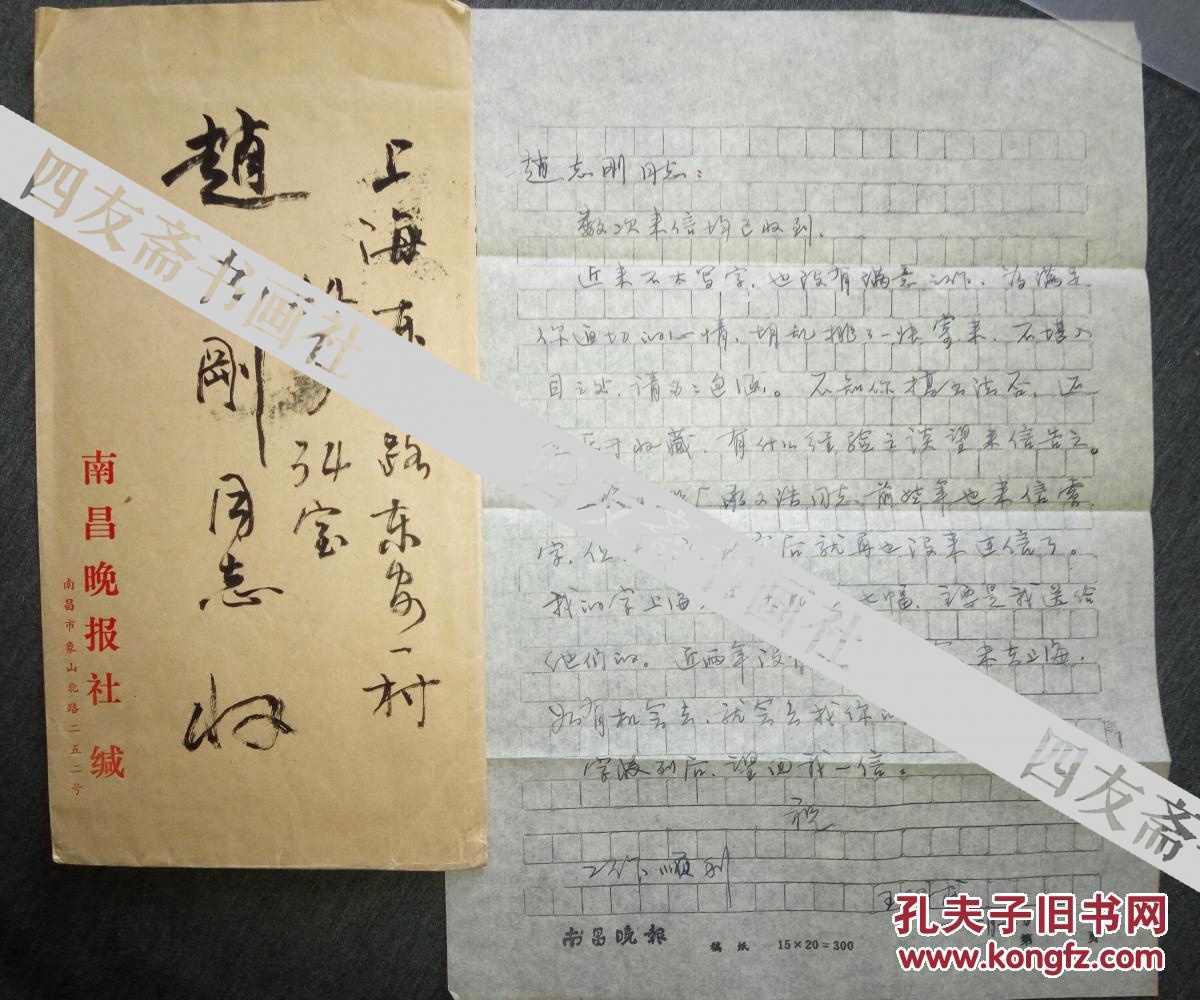 上海东 路东安一村
弄 室
趙 剛同志 收
南昌晚报社 缄
南昌市象山北路二五二号
趙志刚同志：
数次来信均已收到。
近来不大写字，也没有满意之作，为满足
你迫切的心情，胡乱挑了一张寄来，不堪入
目之处，请多多包涵。不知你搞书法否，还
于收藏，有什么经验之谈望来信告之。
同志，前些年也来信索
字，但 后就再也没来过信了。
我的字上海 七幅，主要是我送给
他们的。近两年没有 来去上海，
如有机会去，就会去找你的
字收到后，望回我一信。
祝
工作顺利
王
南昌晚報 稿纸 15×20＝300 第 页
四友斋书画社
四友斋书画社
四友斋
孔夫子旧书网
www.kongfz.com